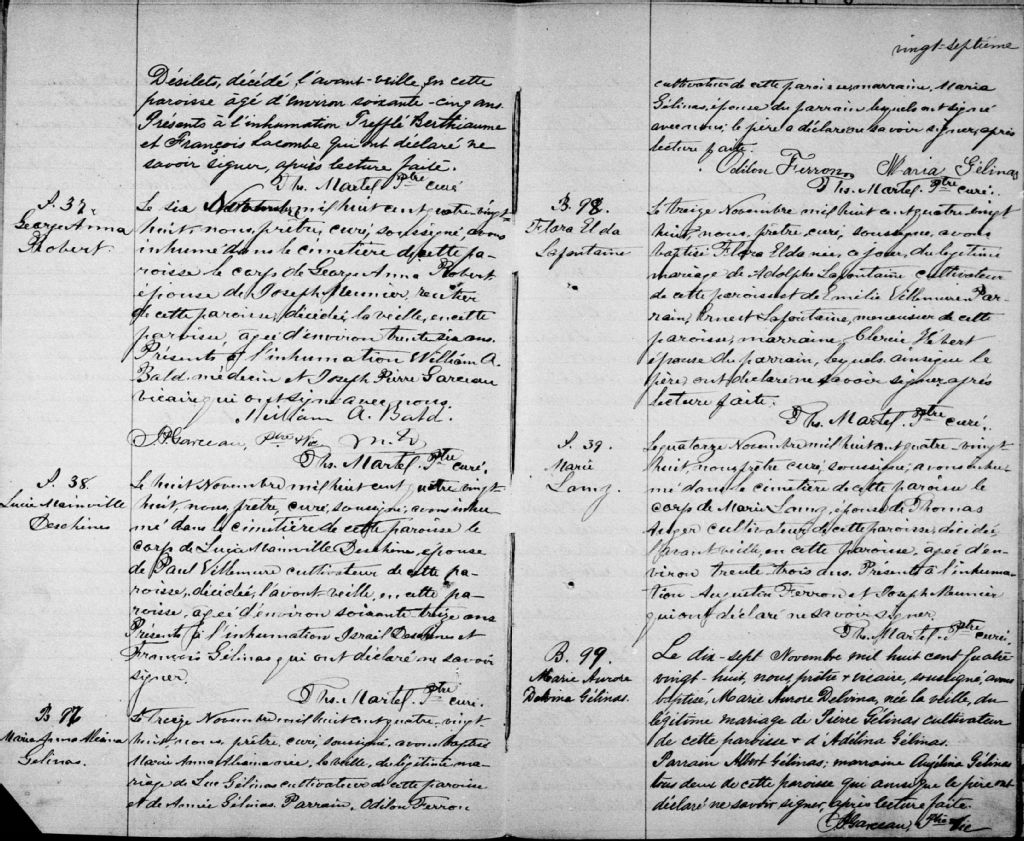 Désilets, décédé, l'avant-veille, en cette
paroisse âgé d'environ soixante-cinq ans.
Présents à l'inhumation Trefflé Berthiaume
et François Lacombe qui ont déclaré ne
savoir signer, après lecture faite.
Ths. Martel. Ptre curé
S. 37.
Georg. Anna
Robert
Le six Novembre, mil huit cent quatre-vingt
huit, nous, prêtre, curé, soussigné avons
inhumé dans le cimetière de cette pa-
roisse le corps de Georg. Anna Robert
épouse de Joseph Meunier, rentier
de cette paroisse, décédée, la veille, en cette
paroisse, agée d'environ trente six ans.
Présents à l'inhumation William A.
Bald, médecin et Joseph Pierre Garceau
vicaire qui ont signé avec nous.
William A. Bald.
J.P. Garceau, ptre Vic
Ths. Martel. Ptre curé.
S. 38.
Lucie Mainville
Deschênes
Le huit Novembre mil huit cent quatre vingt-
huit, nous, prêtre, curé, soussigné, avons inhu-
mé dans le cimetière de cette paroisse le
corps de Lucie Mainville Deschêne, épouse
de Paul Villemure cultivateur de cette pa-
roisse, décédée, l'avant veille, en cette pa-
roisse, agée d'environ soixante treize ans
Présents à l'inhumation Israil Deschênes et
François Gélinas qui ont déclaré ne savoir
signer.
Ths. Martel. Ptre curé.
B. 97
Marie Anna
Gélinas.
Le treize Novembre mil huit cent quatre, vingt-
huit, nous, prêtre, curé, soussigné, avons baptisé
Marie Anna née, la veille, du légitime ma-
riage de Luc Gélinas cultivateur de cette paroisse
et de Annie Gélinas. Parrain, Odilon Ferron
vingt-septième
cultivateur de cette paroisse, marraine, Maria
Gélinas, épouse du parrain, lesquels ont signé
avec nous; le père a déclaré ne savoir signer, après
lecture faite.
Odilon Ferron Maria Gélinas
Ths. Martel. Ptre curé.
B. 98.
Flora Elda
Lafontaine
Le treize Novembre mil huit cent quatre vingt
huit nous, prêtre, curé, soussigné, avons
baptisé Flora Elda née, ce jour, du légitime
mariage de Adolphe Lafontaine cultivateur
de cette paroisse et de Emélie Villemure. Par-
rain, Ernest Lafontaine, menuisier de cette
paroisse, marraine, Hébert
épouse du parrain, lesquels ainsi que le
père, ont déclaré ne savoir signer après
lecture faite.
Ths. Martel. Ptre curé.
S. 39.
Marie
Le quatorze Novembre mil huit cent quatre, vingt
huit, nous, prêtre, curé, soussigné, avons inhu-
mé dans le cimetière de cette paroisse le
corps de Marie épouse de Thomas
Auger cultivateur de cette paroisse, décédée,
l'avant veille, en cette paroisse, agée d'en-
viron trente-trois ans. Présents à l'inhuma-
tion Augustin Ferron et Joseph Meunier
qui ont déclaré ne savoir signer.
Ths. Martel. Ptre curé.
B. 99.
Marie Aurore
Delvina Gélinas.
Le dix-sept Novembre mil huit cent quatre
vingt-huit, nous, prêtre & vicaire, soussigné, avons
baptisé, Marie Aurore Delvina, née la veille, du
légitime mariage de Pierre Gélinas cultivateur
de cette paroisse & d'Adélina Gélinas.
Parrain Albert Gélinas; marraine Angélina Gélinas
tous deux de cette paroisse qui ainsi que le père ont
déclaré ne savoir signer, après lecture faite.
J.P. Garceau, Ptre Vic